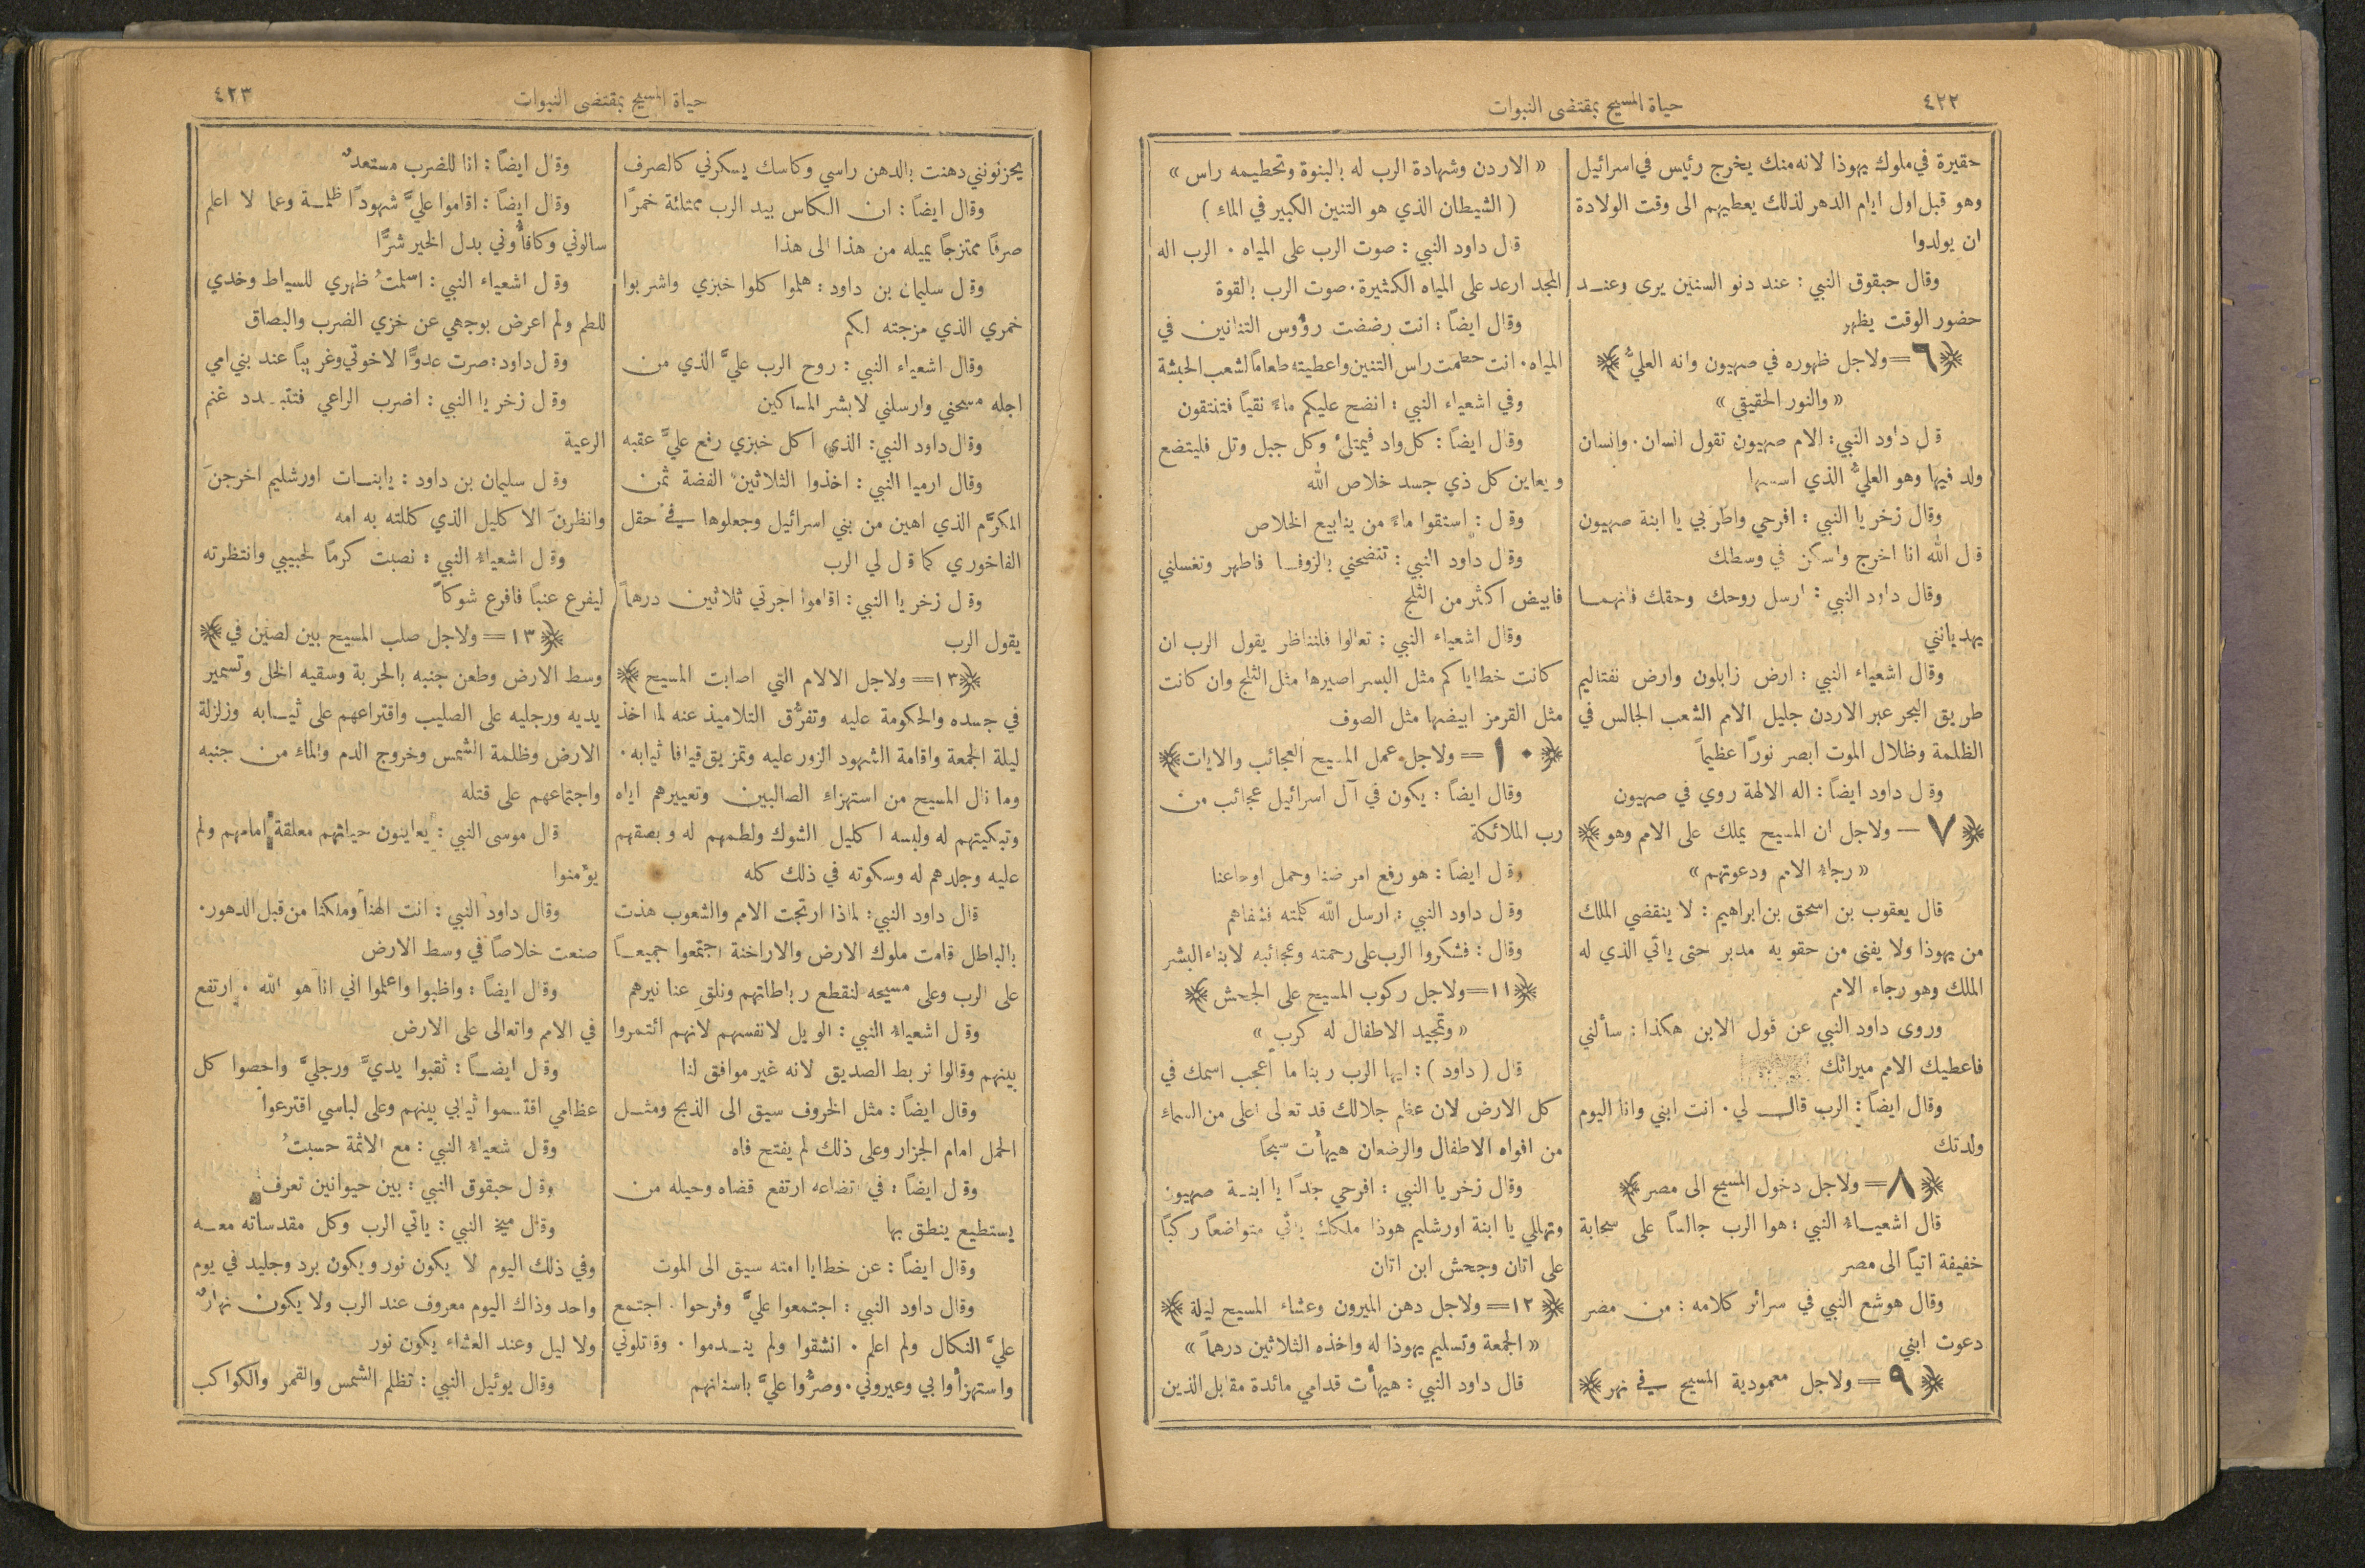 ٤٢٢
حياة المسيح بمقتضى النبوات
حقيرة في ملوك يهوذا لانه منك يخرج رئيس في اسرائيل
وهو قبل اول ايام الدهر لذلك يعطيهم الى وقت الولادة
ان يولدوا
وقال حبقوق النبي : عند دنو السنين يرى وعند
حضور الوقت يظهر
﴿٦ = ولاجل ظهوره في صهيون وانه العليُّ ﴾
« والنور الحقيقي »
قال داود النبي : الام صهيون تقول انسان ٠ وانسان
ولد فيها وهو العليُّ الذي اسسها
وقال زخريا النبي : افرحي واطربي يا ابنة صهيون
قال الله انا اخرج واسكن في وسطك
وقال داود النبي : ارسل روحك وحقك فانهما
يهديانني
وقال اشعياء النبي : ارض زابلون وارض نفتاليم
طريق البحر عبر الاردن جليل الامم الشعب الجالس في
الظلمة وظلال الموت ابصر نورًا عظيماً
وقال داود ايضاً : اله الالهة روي في صهيون
﴿٧ – ولاجل ان المسيح يملك على الامم وهو ﴾
« رجاء الامم ودعوتهم »
قال يعقوب بن اسحق بن ابراهيم : لا ينقضي الملك
من يهوذا ولا يفنى من حقويه مدبر حتى ياتي الذي له
الملك وهو رجاء الامم
وروى داود النبي عن قول الابن هكذا : سألني
فاعطيك الامم ميراثك
وقال ايضاً : الرب قال لي ٠ انت ابني وانا اليوم
ولدتك
﴿٨ = ولاجل دخول المسيح الى مصر ﴾
قال اشعياء النبي : هوا الرب جالساً على سحابة
خفيفة اتياً الى مصر
وقال هوشع النبي في سرائر كلامه : من مصر
دعوت ابني
﴿٩ = ولاجل معمودية المسيح في نهر ﴾
« الاردن وشهادة الرب له بالبنوة وتحطيمه راس »
( الشيطان الذي هو التنين الكبير في الماء )
قال داود النبي : صوت الرب على المياه ٠ الرب اله
المجد ارعد على المياه الكثيرة ٠ صوت الرب بالقوة
وقال ايضاً : انت رضضت رؤوس التنانين في
المياه ٠ انت حطمت راس التنين واعطيته طعاماً لشعب الحبشة
وفي اشعياء النبي : انضح عليكم ماءً نقياً فتنتقون
وقال ايضاً : كل واد فيمتلئ وكل جبل وتل فليتضع
ويعاين كل ذي جسد خلاص الله
وقال : استقوا ماءً من ينابيع الخلاص
وقال داود النبي : تنضحني بالزوفا فاطهر وتغسلني
فابيض اكثر من الثلج
وقال اشعياء النبي : تعالوا فلنناظر يقول الرب ان
كانت خطاياكم مثل البسر اصيرها مثل الثلج وان كانت
مثل القرمز ابيضها مثل الصوف
﴿١٠ = ولاجل عمل المسيح العجائب والايات﴾
وقال ايضاً : يكون في آل اسرائيل عجائب من
رب الملائكة
وقال ايضاً : هو رفع امراضنا وحمل اوجاعنا
وقال داود النبي : ارسل الله كلمته فشفاهم
وقال : فشكروا الرب على رحمته وعجائبه لابناء البشر
﴿١١=ولاجل ركوب المسيح على الجحش ﴾
« وتمجيد الاطفال له كرب »
قال ( داود ) : ايها الرب ربنا ما أعجب اسمك في
كل الارض لان عظم جلالك قد تعالى اعلى من السماء
من افواه الاطفال والرضعان هيأت سبحاً
وقال زخريا النبي : افرحي جدًا يا ابنة صهيون
وتهللي يا ابنة اورشليم هوذا ملكك ياتي متواضعاً راكباً
على اتان وجحش ابن اتان
﴿١٢= ولاجل دهن الميرون وعشاء المسيح ليلة ﴾
« الجمعة وتسليم يهوذا له واخذه الثلاثين درهماً »
قال داود النبي : هيأت قدامي مائدة مقابل الذين
حياة المسيح بمقتضى النبوات
٤٢٣
يحزنونني دهنت بالدهن راسي وكاسك يسكرني كالصرف
وقال ايضاً : ان الكاس بيد الرب ممتلئة خمرًا
صرفًا ممتزجًا يميله من هذا الى هذا
وقال سليمان بن داود : هلموا كلوا خبزي واشربوا
خمري الذي مزجته لكم
وقال اشعياء النبي : روح الرب عليَّ الذي من
اجله مسحني وارسلني لابشر المساكين
وقال داود النبي : الذي اكل خبزي رفع عليَّ عقبه
وقال ارميا النبي : اخذوا الثلاثين الفضة ثمن
المكرَّم الذي اهين من بني اسرائيل وجعلوها في حقل
الفاخوري كما قال لي الرب
وقال زخريا النبي : اقاموا اجرتي ثلاثين درهماً
يقول الرب
﴿١٣= ولاجل الالام التي اصابت المسيح ﴾
في جسده والحكومة عليه وتفرُّق التلاميذ عنه لما اخذ
ليلة الجمعة واقامة الشهود الزور عليه وتمزيق قيافا ثيابه ٠
وما نال المسيح من استهزاء الصالبين وتعييرهم اياه
وتبكيتهم له ولبسه اكليل الشوك ولطمهم له وبصقهم
عليه وجلدهم له وسكوته في ذلك كله
قال داود النبي : لماذا ارتجت الامم والشعوب هذت
بالباطل قامت ملوك الارض والاراخنة اجتمعوا جميعاً
على الرب وعلى مسيحه لنقطع رباطاتهم ونلقِ عنا نيرهم
وقال اشعياء النبي : الويل لانفسهم لانهم ائتمروا
بينهم وقالوا نربط الصديق لانه غير موافق لنا
وقال ايضاً : مثل الخروف سيق الى الذبح ومثل
الحمل امام الجزار وعلى ذلك لم يفتح فاه
وقال ايضاً : في اتضاعه ارتفع قضاه وحيله من
يستطيع ينطق بها
وقال ايضاً : عن خطايا امته سيق الى الموت
وقال داود النبي : اجتمعوا عليَّ وفرحوا ٠ اجتمع
عليَّ النكال ولم اعلم ٠ انشقوا ولم يندموا ٠ وقاتلوني
واستهزأوا بي وعيروني ٠ وصرُّوا عليَّ باسنانهم
وقال ايضاً : انا للضرب مستعدٌ
وقال ايضاً : اقاموا عليَّ شهودًا ظلمة وعما لا اعلم
سالوني وكافأوني بدل الخير شرًّا
وقال اشعياء النبي : اسلمتُ ظهري للسياط وخدي
للطم ولم اعرض بوجهي عن خزي الضرب والبصاق
وقال داود : صرت عدوًّا لاخوتي وغريباً عند بني امي
وقال زخريا النبي : اضرب الراعي فتتبدد غنم
الرعية
وقال سليمان بن داود : يابنات اورشليم اخرجنَ
وانظرنَ الاكليل الذي كللته به امه
وقال اشعياء النبي : نصبت كرمًا لحبيبي وانتظرته
ليفرع عنباً فافرع شوكاً
﴿١٣= ولاجل صلب المسيح بين لصين في﴾
وسط الارض وطعن جنبه بالحربة وسقيه الخل وتسمير
يديه ورجليه على الصليب واقتراعهم على ثيابه وزلزلة
الارض وظلمة الشمس وخروج الدم والماء من جنبه
واجتماعهم على قتله
قال موسى النبي : يعاينون حياتهم معلقة امامهم ولم
يؤمنوا
وقال داود النبي : انت الهنا وملكنا من قبل الدهور ٠
صنعت خلاصاً في وسط الارض
وقال ايضاً : واظبوا واعلموا اني انا هو الله ٠ ارتفع
في الامم واتعالى على الارض
وقال ايضاً : ثقبوا يديَّ ورجليَّ واحصوا كل
عظامي اقتسموا ثيابي بينهم وعلى لباسي اقترعوا
وقال شعياء النبي : مع الاثمة حسبتُ
وقال حبقوق النبي : بين حيوانين تعرف
وقال ميخا النبي : ياتي الرب وكل مقدساته معه
وفي ذلك اليوم لا يكون نور ويكون برد وجليد في يوم
واحد وذاك اليوم معروف عند الرب ولا يكون نهارٌ
ولا ليل وعند العشاء يكون نور
وقال يوئيل النبي : تظلم الشمس والقمر والكواكب